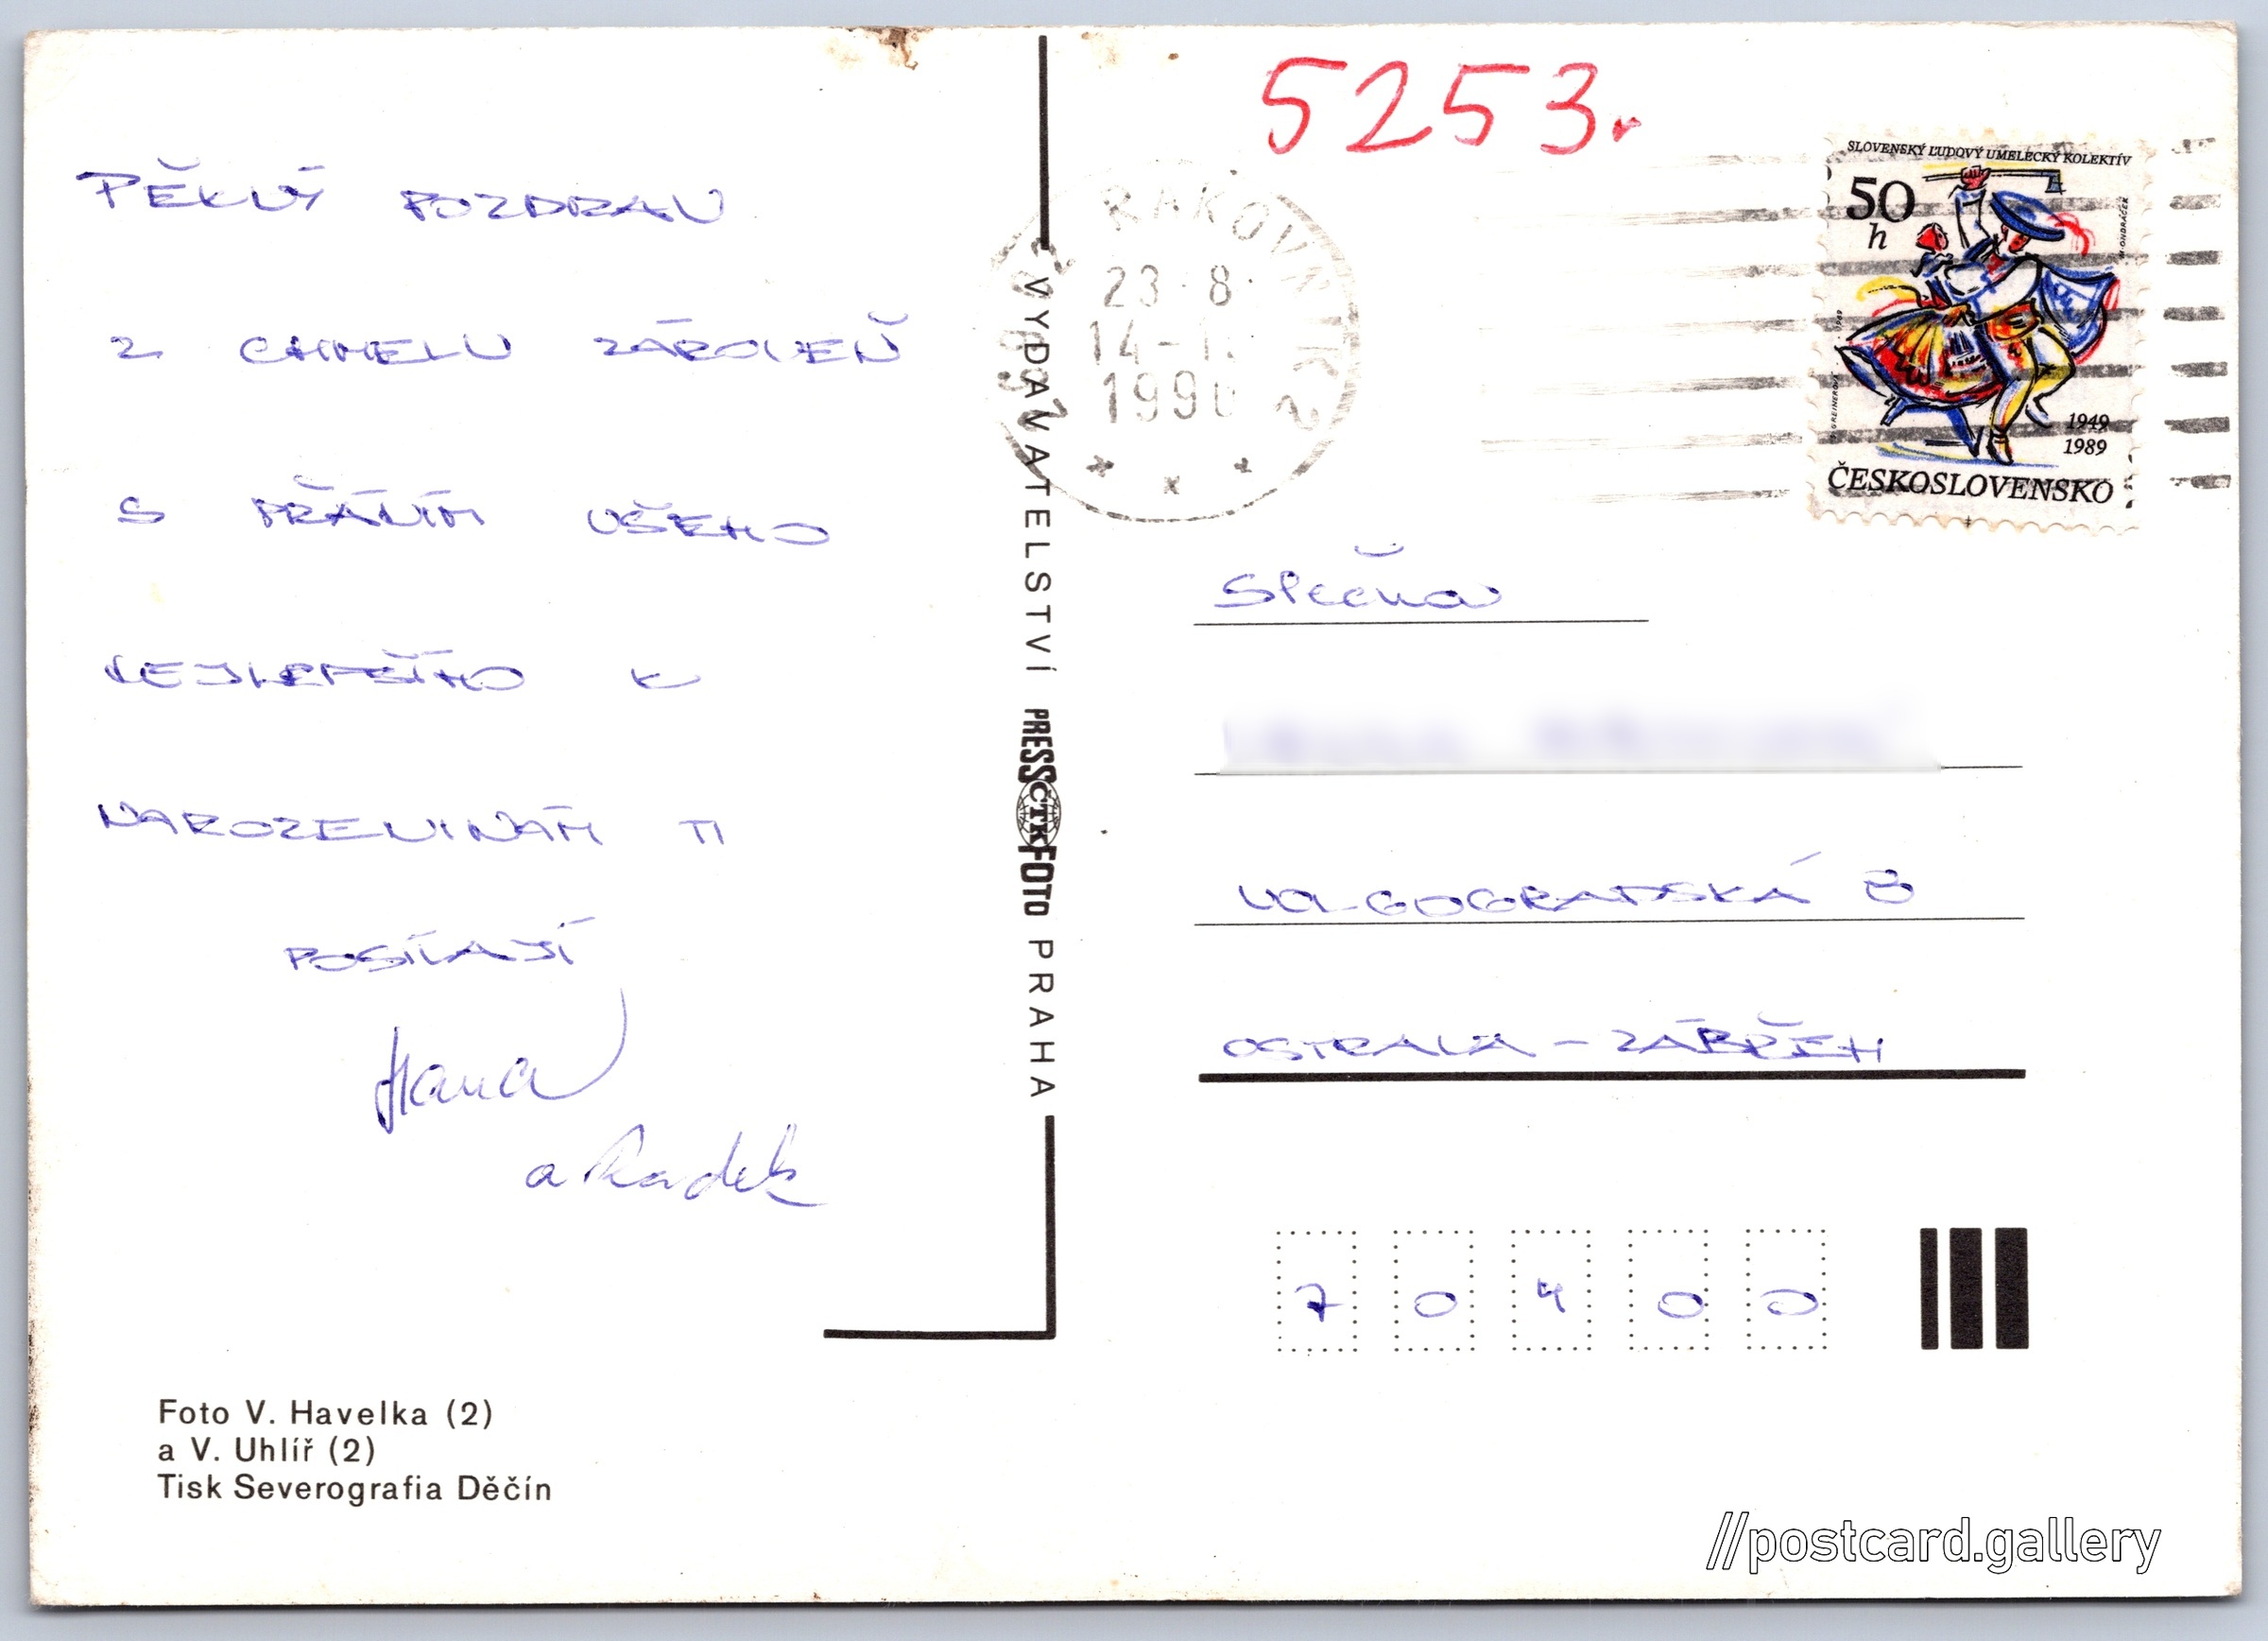 PĚKNÝ POZDRAV
Z CHMELU ZÁROVEŇ
S PŘÁNÍM VŠEHO
NEJLEPŠÍHO K
NAROZENINÁM TI
POSÍLAJÍ
Hana
a Radek
Foto V. Havelka (2)
a V. Uhlíř (2)
Tisk Severografia Děčín
VYDAVATELSTVÍ PRESSFOTO PRAHA
ČTK
5253
RAKOVNÍK 2
23.8.
14-1
1990
SLOVENSKÝ ĽUDOVÝ UMELECKÝ KOLEKTÍV
50
h
1949
1989
ČESKOSLOVENSKO
Slečna
VOLGOGRADSKÁ 8
OSTRAVA - ZÁBŘEH
7 0 4 0 0
//postcard.gallery